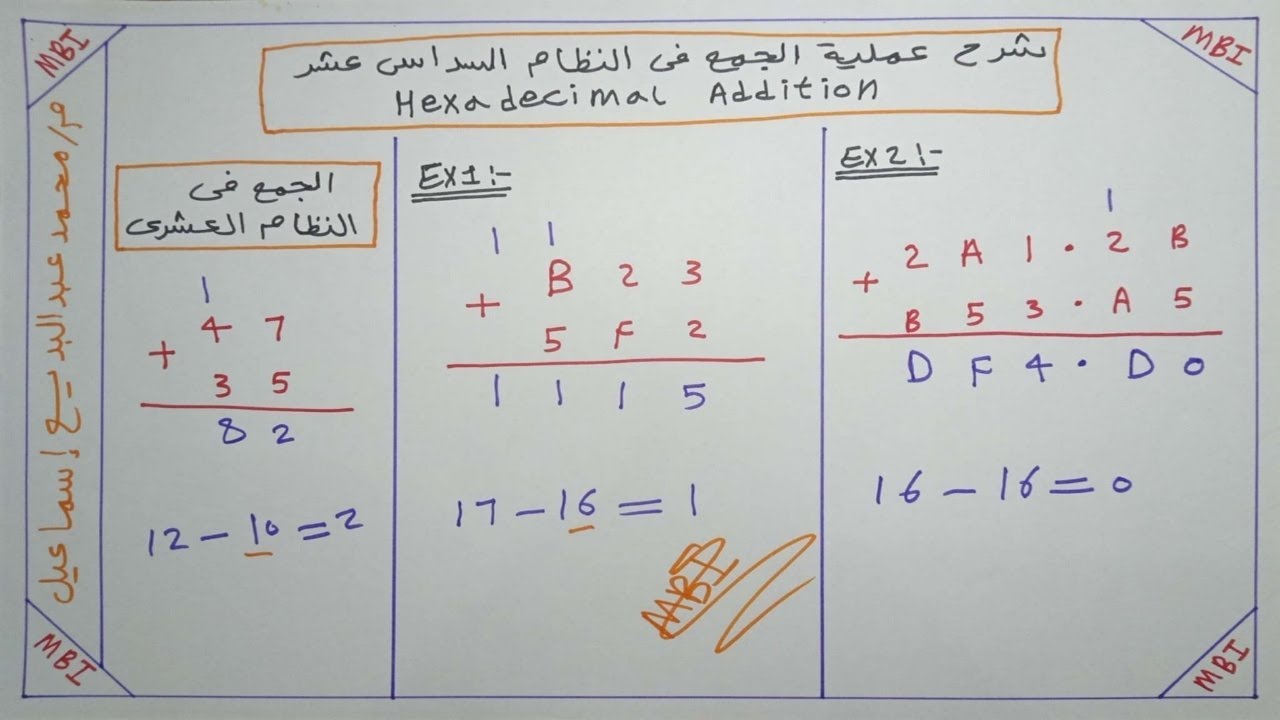 MBI
MBI
شرح عملية الجمع فى النظام السداسى عشر
Hexadecimal Addition
م/محمد عبد البديع إسماعيل
الجمع فى
النظام العشرى
1
4 7
+
3 5
8 2
12 - 10 = 2
EX1:-
1 1
B 2 3
+
5 F 2
1 1 1 5
17 - 16 = 1
MBI
EX2:-
1
2 A 1 . 2 B
+
B 5 3 . A 5
D F 4 . D 0
16 - 16 = 0
MBI
MBI